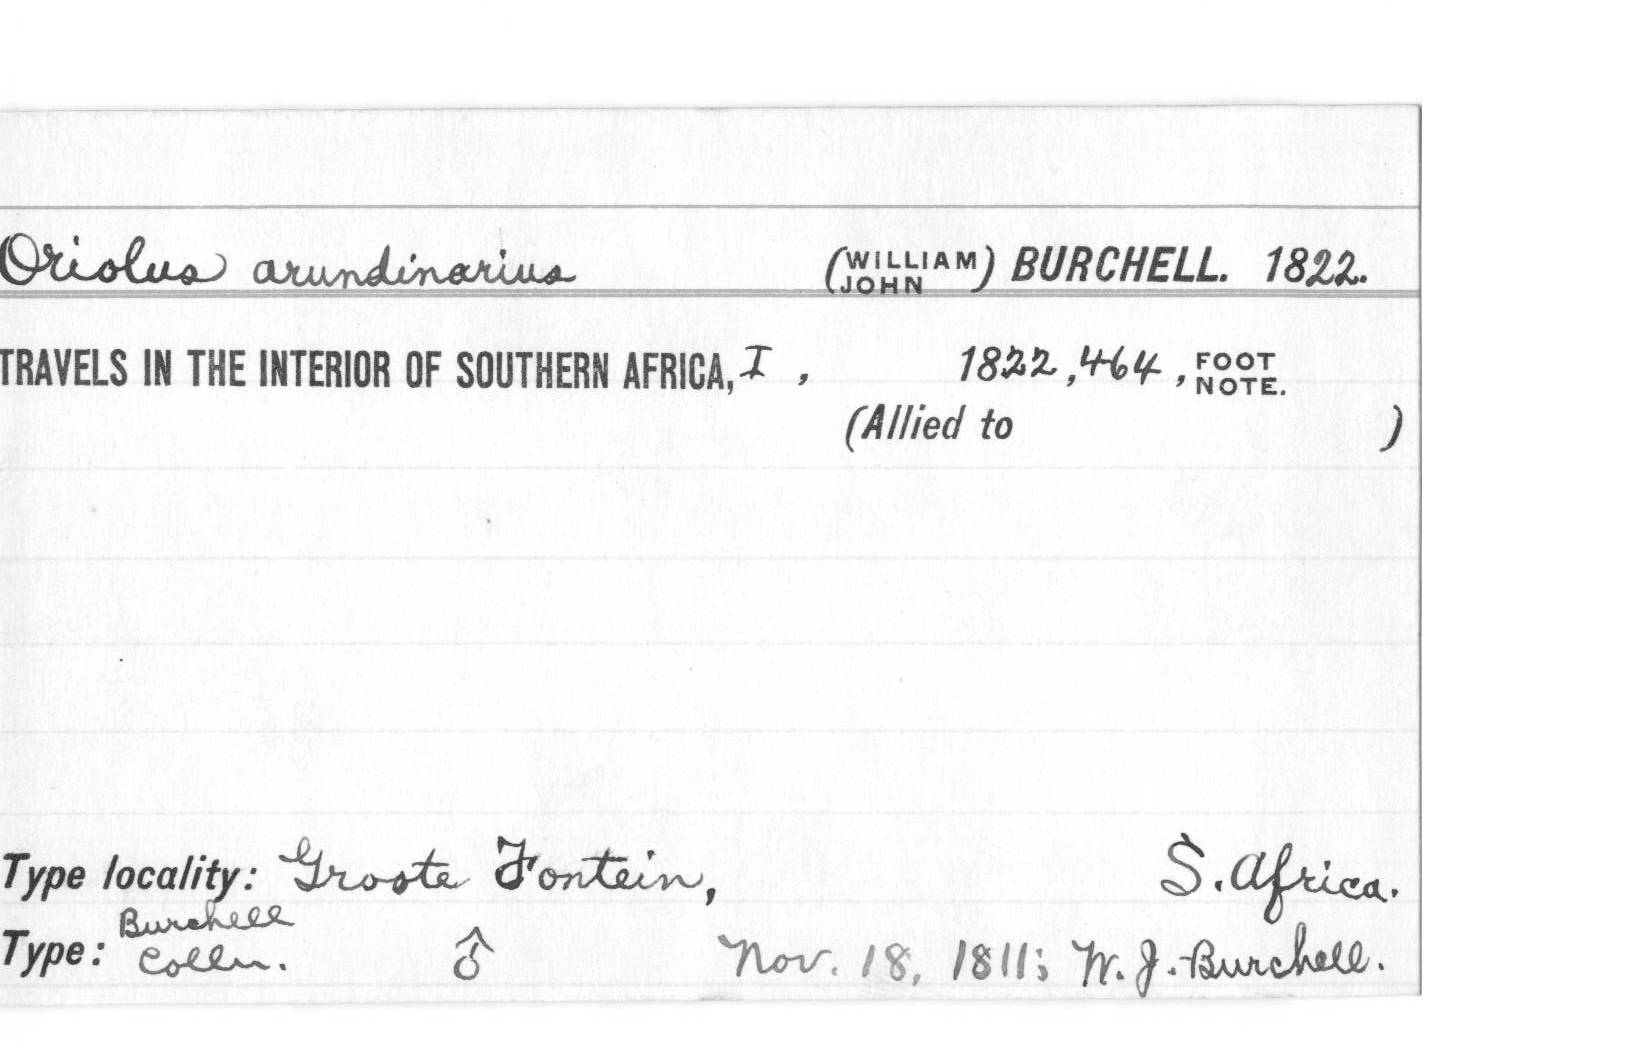 Oriolus arundinarius (WILLIAM JOHN) BURCHELL. 1822.
TRAVELS IN THE INTERIOR OF SOUTHERN AFRICA, I, 1822, 464, FOOT NOTE.
(Allied to )
Type locality: Groote Fontein, S. Africa.
Type: Burchell Colln. ♂ Nov. 18, 1811; W. J. Burchell.